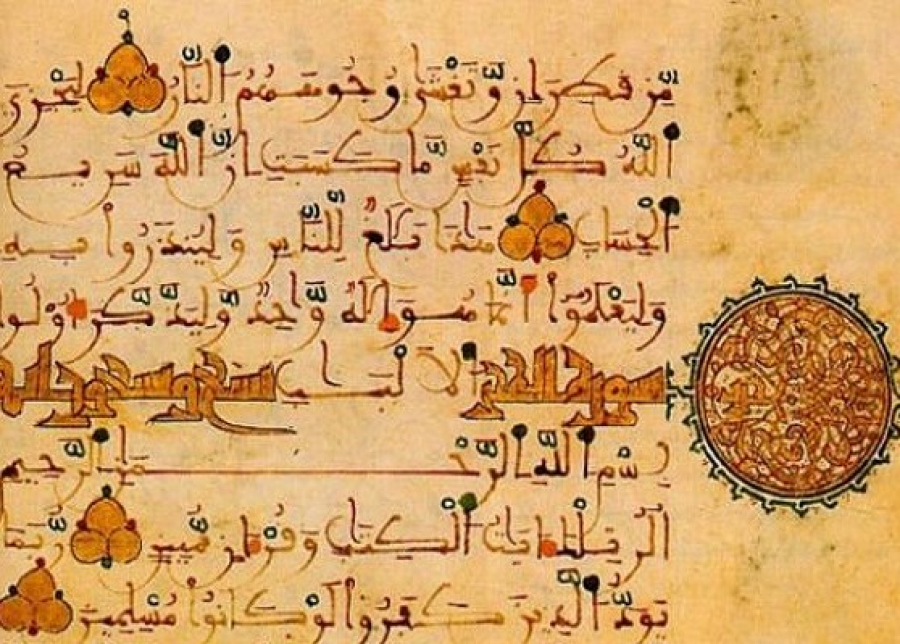 مِّن قَطِرَانٍ وَّتَغْشَىٰ وُجُوهَهُمُ النَّارُ لِيَجْزِيَ
اللَّهُ كُلَّ نَفْسٍ مَّا كَسَبَتْ إِنَّ اللَّهَ سَرِيعُ
الْحِسَابِ هَٰذَا بَلَٰغٌ لِّلنَّاسِ وَلِيُنذَرُوا بِهِ
وَلِيَعْلَمُوا أَنَّمَا هُوَ إِلَٰهٌ وَّاحِدٌ وَّلِيَذَّكَّرَ أُوْلُوا
سورة الحجر الالبـاب تسع وتسعون
بِسْمِ اللَّهِ الرَّحْمَٰنِ الرَّحِيمِ
الٓر تِلْكَ ءَايَٰتُ الْكِتَٰبِ وَقُرْءَانٍ مُّبِينٍ رُّبَمَا
يَوَدُّ الَّذِينَ كَفَرُوا لَوْ كَانُوا مُسْلِمِينَ